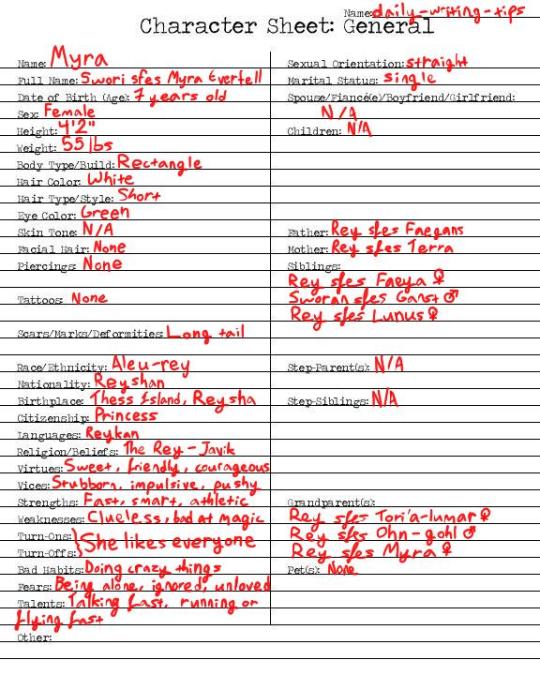 Name: daily-writing-tips
Character Sheet: General
Name: Myra
Full Name: Swori sfes Myra Evertell
Date of Birth (Age): 7 years old
Sex: Female
Height: 4'2"
Weight: 55 lbs
Body Type/Build: Rectangle
Hair Color: White
Hair Type/Style: Short
Eye Color: Green
Skin Tone: N/A
Facial Hair: None
Piercings: None
Tattoos: None
Scars/Marks/Deformities: Long tail
Race/Ethnicity: Aleu-rey
Nationality: Reyshan
Birthplace: Thess Island, Reysha
Citizenship: Princess
Languages: Reykan
Religion/Beliefs: The Rey - Javik
Virtues: Sweet, friendly, courageous
Vices: Stubborn, impulsive, pushy
Strengths: Fast, smart, athletic
Weaknesses: Clueless, bad at magic
Turn-Ons: } She likes everyone
Turn-Offs:
Bad Habits: Doing crazy things
Fears: Being alone, ignored, unloved
Talents: Talking fast, running or
flying fast
Other:
Sexual Orientation: straight
Marital Status: single
Spouse/Fiancé(e)/Boyfriend/Girlfriend:
N/A
Children: N/A
Father: Rey sfes Faegans
Mother: Rey sfes Terra
Siblings:
Rey sfes Faeya ♀
Sworan sfes Ganst ♂
Rey sfes Lunus ♀
Step-Parent(s): N/A
Step-Siblings: N/A
Grandparent(s):
Rey sfes Tori'a-lumar ♀
Rey sfes Ohn-gohl ♂
Rey sfes Myra ♀
Pet(s): None